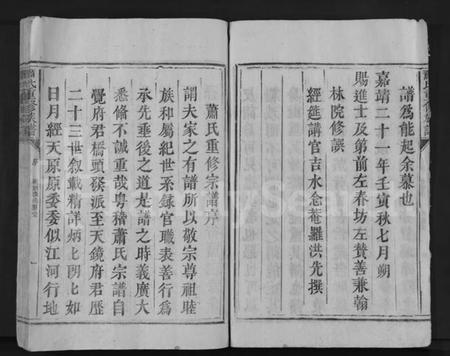 譜爲能起余慕也
嘉靖二十一年壬寅秋七月朔
賜進士及第前左春坊左贊善兼翰
林院修譔
經筵講官吉水念菴羅洪先撰
蕭氏重修宗譜序
謂夫家之有譜所以敬宗尊祖睦
族和屬紀世系錄官職表善行爲
承先垂後之道是譜之時義廣大
悉備不誠重哉粵稽蕭氏宗譜自
覺府君橋頭發派至天鏡府君歷
二十三世敘載精詳炳炳如
日月經天原原委委似江河行地